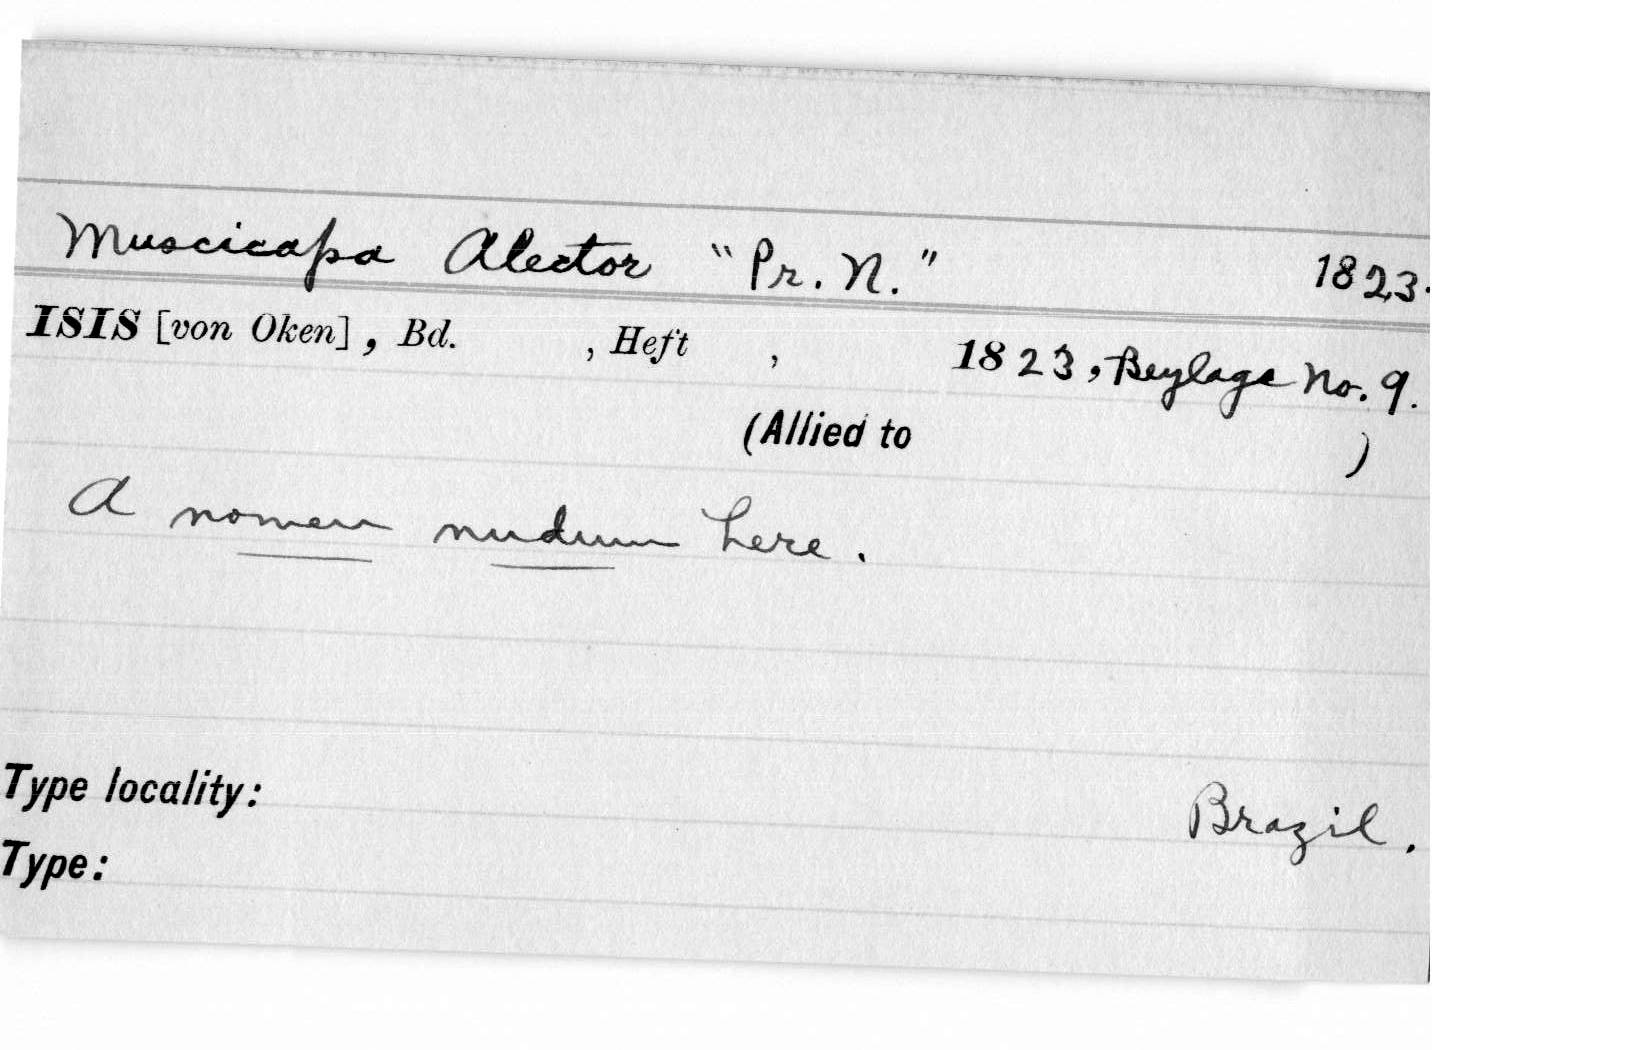 Muscicapa Alector "Pr. N." 1823.
ISIS [von Oken], Bd. , Heft , 1823, Beylage No. 9.
(Allied to )
A nomen nudum here.
Type locality: Brazil.
Type: